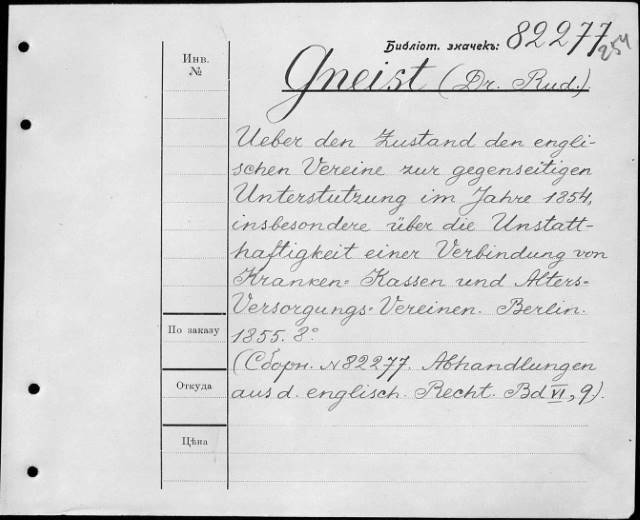 Библіот. значекъ: 82277
254
Инв.
№
Gneist (Dr. Rud.)
Ueber den Zustand den engli-
schen Vereine zur gegenseitigen
Unterstutzung im Jahre 1854,
insbesondere über die Unstatt-
haftigkeit einer Verbindung von
Kranken-Kassen und Alters-
Versorgungs-Vereinen. Berlin.
По заказу
1855. 8°
(Сборн. N 82277. Abhandlungen
Откуда
aus d. englisch. Recht. Bd VI, 9).
Цѣна